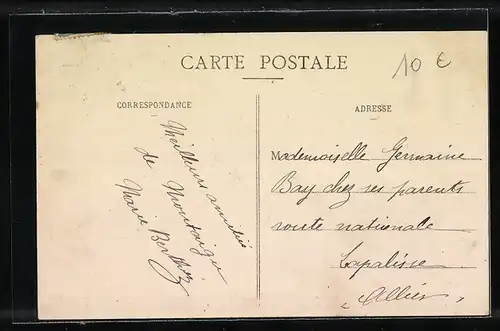 CARTE POSTALE
10 €
CORRESPONDANCE
ADRESSE
Meilleurs amitiés
de Montaigu
Marie
Mademoiselle Germaine
Bay chez ses parents
route nationale
Lapalisse
Allier